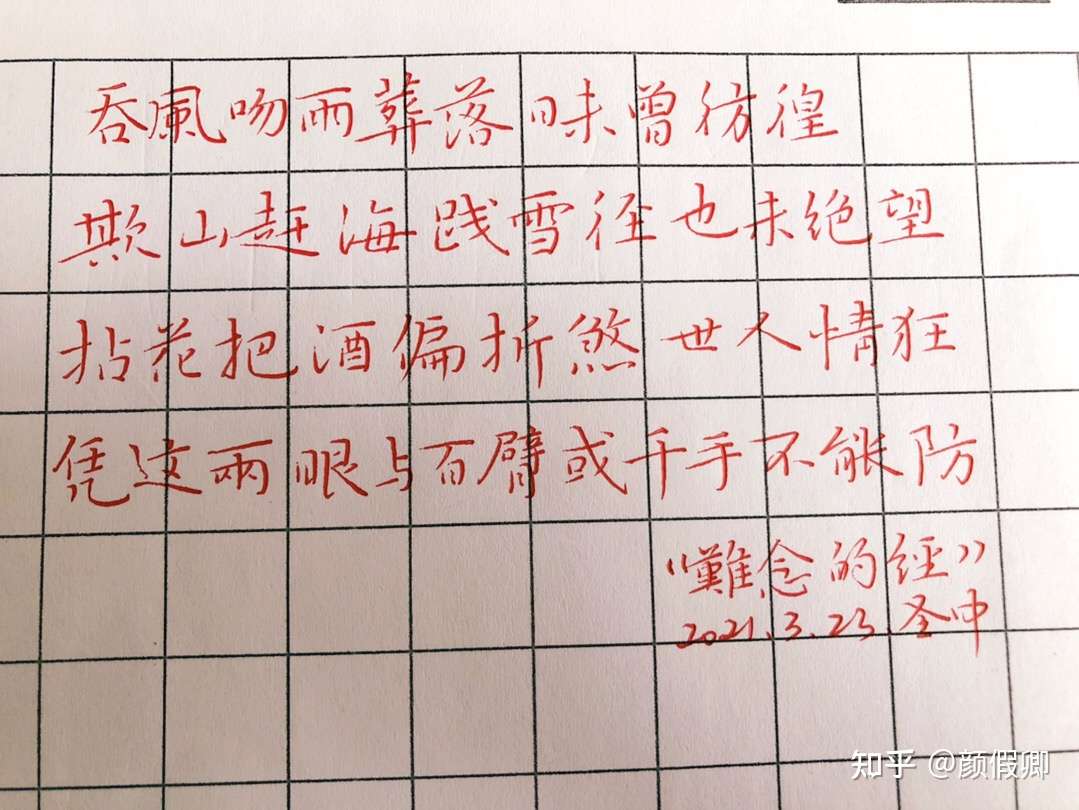 吞風吻雨葬落日未曾彷徨
欺山赶海践雪径也未绝望
拈花把酒偏折煞世人情狂
凭这兩眼与百臂或千手不能防
“難念的經”
2021.3.23 圣中
知乎 @颜假卿